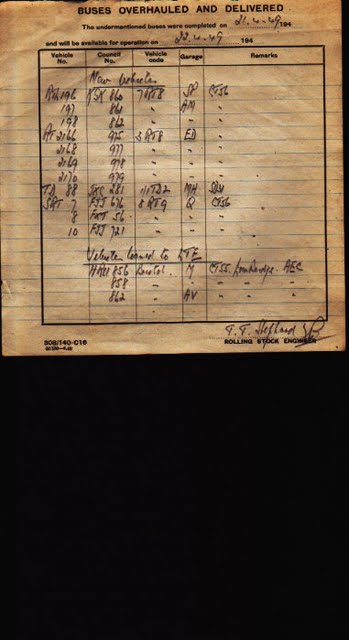 BUSES OVERHAULED AND DELIVERED
The undermentioned buses were completed on 21-4-49 194
and will be available for operation on 22-4-49 194
Vehicle No. Council No. Vehicle code Garage Remarks
New Vehicles
196 KXX 860 7RT8
197 861 " AM "
198 862 " " "
RT 2166 975 3RT8 ED "
2168 977 " " "
2169 978 " " "
2170 979 " " "
TD 88 281 1/1TD2 MH
SRT 7 FXT 676 8RT9 Q CT56
8 FXT 56 " " "
10 FXT 721 " " "
Vehicles loaned to LTE
HRU 856 Bristol M CT55 from AEC
858 " " " " "
862 " AV " " "
T. T. Shephard
308/140-C16
ROLLING STOCK ENGINEER